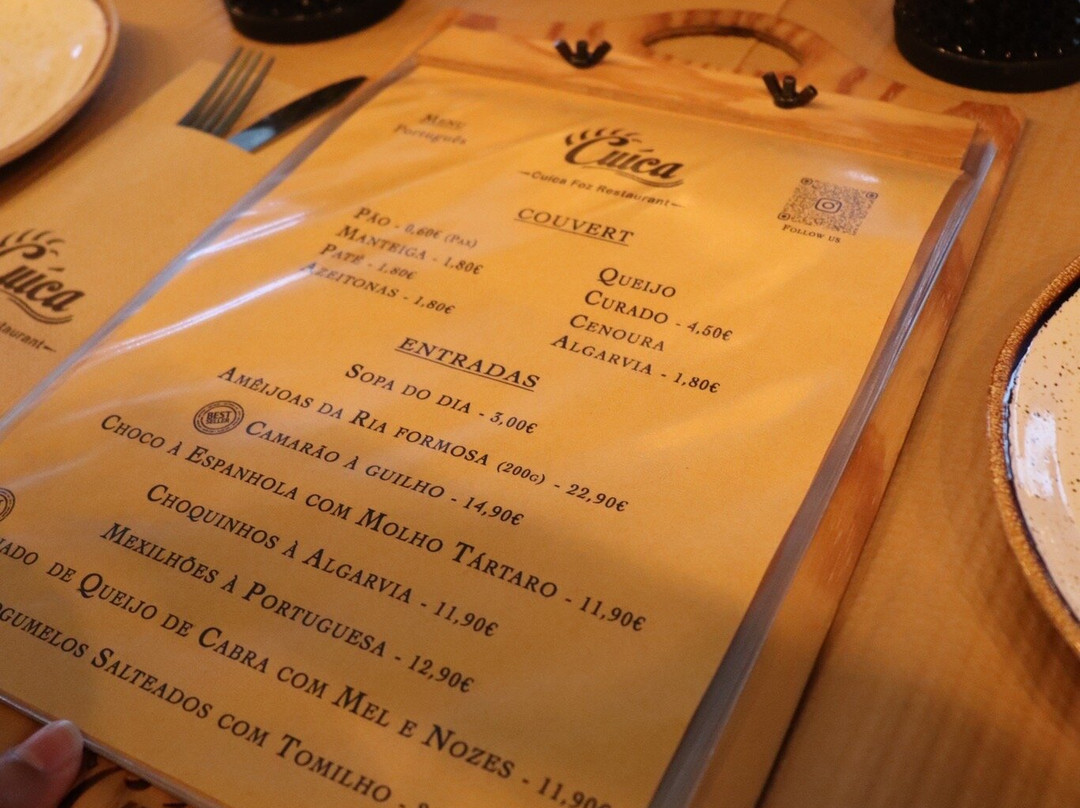 Menu
Português
Cuíca
Cuíca Foz Restaurant
Follow us
COUVERT
Pão - 0,60€ (Pax)
Manteiga - 1,80€
Patê - 1,80€
Azeitonas - 1,80€
Queijo
Curado - 4,50€
Cenoura
Algarvia - 1,80€
ENTRADAS
Sopa do dia - 3,00€
Amêijoas da Ria formosa (200g) - 22,90€
BEST SELLER
Camarão à guilho - 14,90€
Choco à Espanhola com Molho Tártaro - 11,90€
Choquinhos à Algarvia - 11,90€
Mexilhões à Portuguesa - 12,90€
de Queijo de Cabra com Mel e Nozes - 11,90€
Salteados com Tomilho -
Cuíca